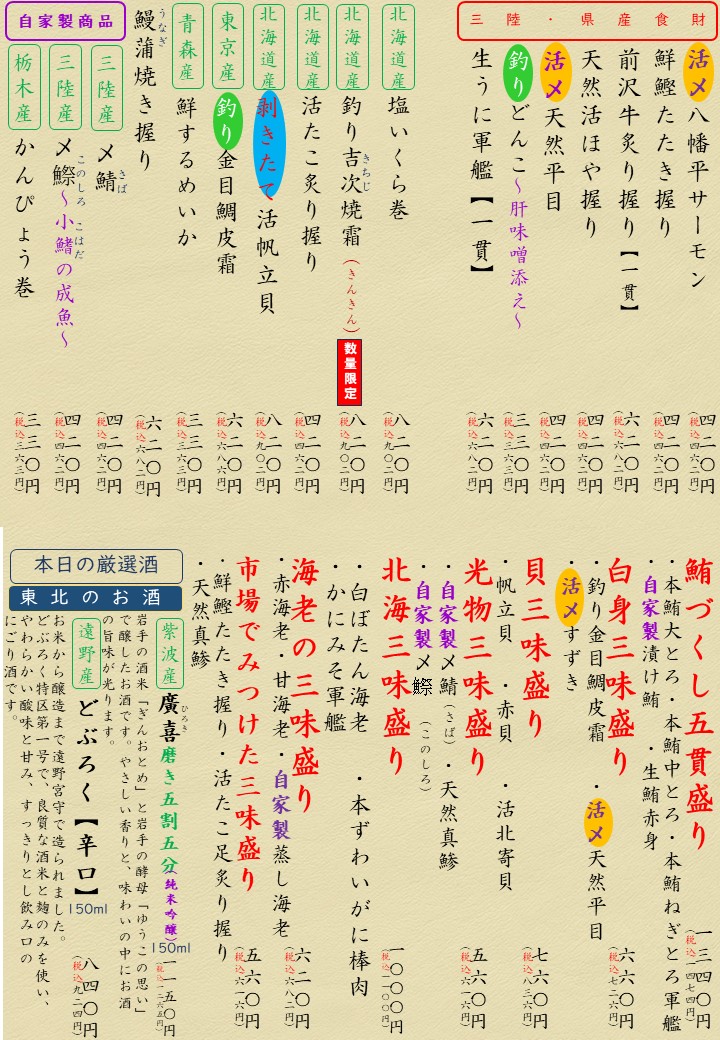 三陸・県産食財
活〆八幡平サーモン
四二〇円
(税込四六二円)
鮮鰹たたき握り
四二〇円
(税込四六二円)
前沢牛炙り握り【一貫】
六二〇円
(税込六八二円)
天然活ほや握り
四二〇円
(税込四六二円)
活〆天然平目
四二〇円
(税込四六二円)
釣りどんこ~肝味噌添え~
三三〇円
(税込三六三円)
生うに軍艦【一貫】
六二〇円
(税込六八二円)
北海道産
塩いくら巻
八二〇円
(税込九〇二円)
北海道産
釣り吉次焼霜(きんきん)
きちじ
数量限定
八二〇円
(税込九〇二円)
北海道産
活たこ炙り握り
四二〇円
(税込四六二円)
北海道産
剥きたて活帆立貝
八二〇円
(税込九〇二円)
東京産
釣り金目鯛皮霜
六二〇円
青森産
鮮するめいか
三三〇円
(税込三六三円)
鰻蒲焼き握り
うなぎ
六二〇円
(税込六八二円)
自家製商品
三陸産
〆鯖
さば
四二〇円
(税込四六二円)
三陸産
〆鰶~小鰭の成魚~
このしろ こはだ
四二〇円
(税込四六二円)
栃木産
かんぴょう巻
三三〇円
(税込三六三円)
鮪づくし五貫盛り
一三四〇円
(税込一四七四円)
・本鮪大とろ・本鮪中とろ・本鮪ねぎとろ軍艦
・自家製漬け鮪 ・生鮪赤身
白身三味盛り
六六〇円
(税込七二六円)
・釣り金目鯛皮霜 ・活〆天然平目
・活〆すずき
貝三味盛り
七六〇円
(税込八三六円)
・帆立貝 ・赤貝 ・活北寄貝
光物三味盛り
五六〇円
(税込六一六円)
・自家製〆鯖(さば)・天然真鰺
・自家製〆鰶(このしろ)
北海三味盛り
一〇〇〇円
(税込一一〇〇円)
・白ぼたん海老 ・本ずわいがに棒肉
・かにみそ軍艦
海老の三味盛り
六二〇円
(税込六八二円)
・赤海老・甘海老・自家製蒸し海老
市場でみつけた三味盛り
五六〇円
(税込六一六円)
・鮮鰹たたき握り・活たこ足炙り握り
・天然真鰺
本日の厳選酒
東北のお酒
紫波産
廣喜磨き五割五分(純米吟醸)
ひろき
150ml
一一五〇円
(税込一二六五円)
岩手の酒米「ぎんおとめ」と岩手の酵母「ゆうこの思い」
で醸したお酒です。やさしい香りと、味わいの中にお酒
の旨味が光ります。
遠野産
どぶろく【辛口】
150ml
八四〇円
(税込九二四円)
お米から醸造まで遠野宮守で造られました。
どぶろく特区第一号で、良質な酒米と麹のみを使い、
やわらかい酸味と甘み、すっきりとし飲み口の
にごり酒です。